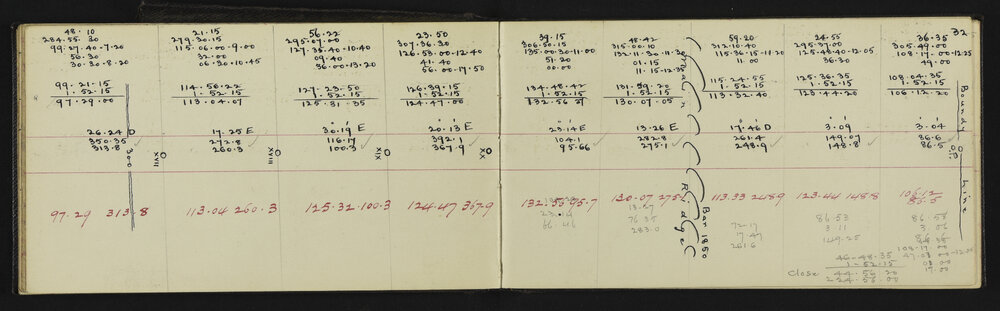 48.10
284.55.30
99.27.40-7.20
56.30
30.30-8.20
99.21.15
1.52.15
97.29.00
26.24 D
350.35
313.8
300
XVII
97.29 313.8
21.15
279.30.15
115.06.00-9.00
32.00
06.30-10.45
114.56.22
1.52.15
113.04.07
17.25 E
272.8
260.3
XVIII
113.04 260.3
56.22
295.07.00
127.35.40-10.40
09.40
36.00-13.20
127.23.50
1.52.15
125.31.35
30.19 E
116.17
100.3
XIX
125.32 100.3
23.50
307.36.30
126.53.00-12.40
41.40
56.00-17.50
126.39.15
1.52.15
124.47.00
20.13 E
392.1
367.9
XX
124.47 367.9
39.15
306.50.15
135.00.30-11.00
51.20
00.00
134.48.42
1.52.15
132.56.27
23.14 E
104.1
95.66
95.7
66.46
48.42
315.00.10
132.11.30-11.30
01.15
11.15-12.35
131.59.20
1.52.15
130.07.05
13.26 E
282.8
275.1
130.07 275.1
76.35
283.0
Ridge
Bar 1850
59.20
312.10.40
115.36.15-11.20
11.00
115.24.55
1.52.15
113.32.40
17.46 D
261.4
248.9
113.33 248.9
72.19
7.47
261.6
24.55
295.37.00
125.48.40-12.05
36.30
125.36.35
1.52.15
123.44.20
3.09
149.07
148.8
123.44 148.8
86.53
3.11
149.25
32
36.35
305.49.00
108.17.00-12.25
49.00
108.04.35
1.52.15
106.12.20
3.04
86.6
86.5
106.12
86.5
86.53
3.06
108.17.00
Boundy
Line
46-48.35
1-52.15
Close 44.56.20
224.56.00
17.00